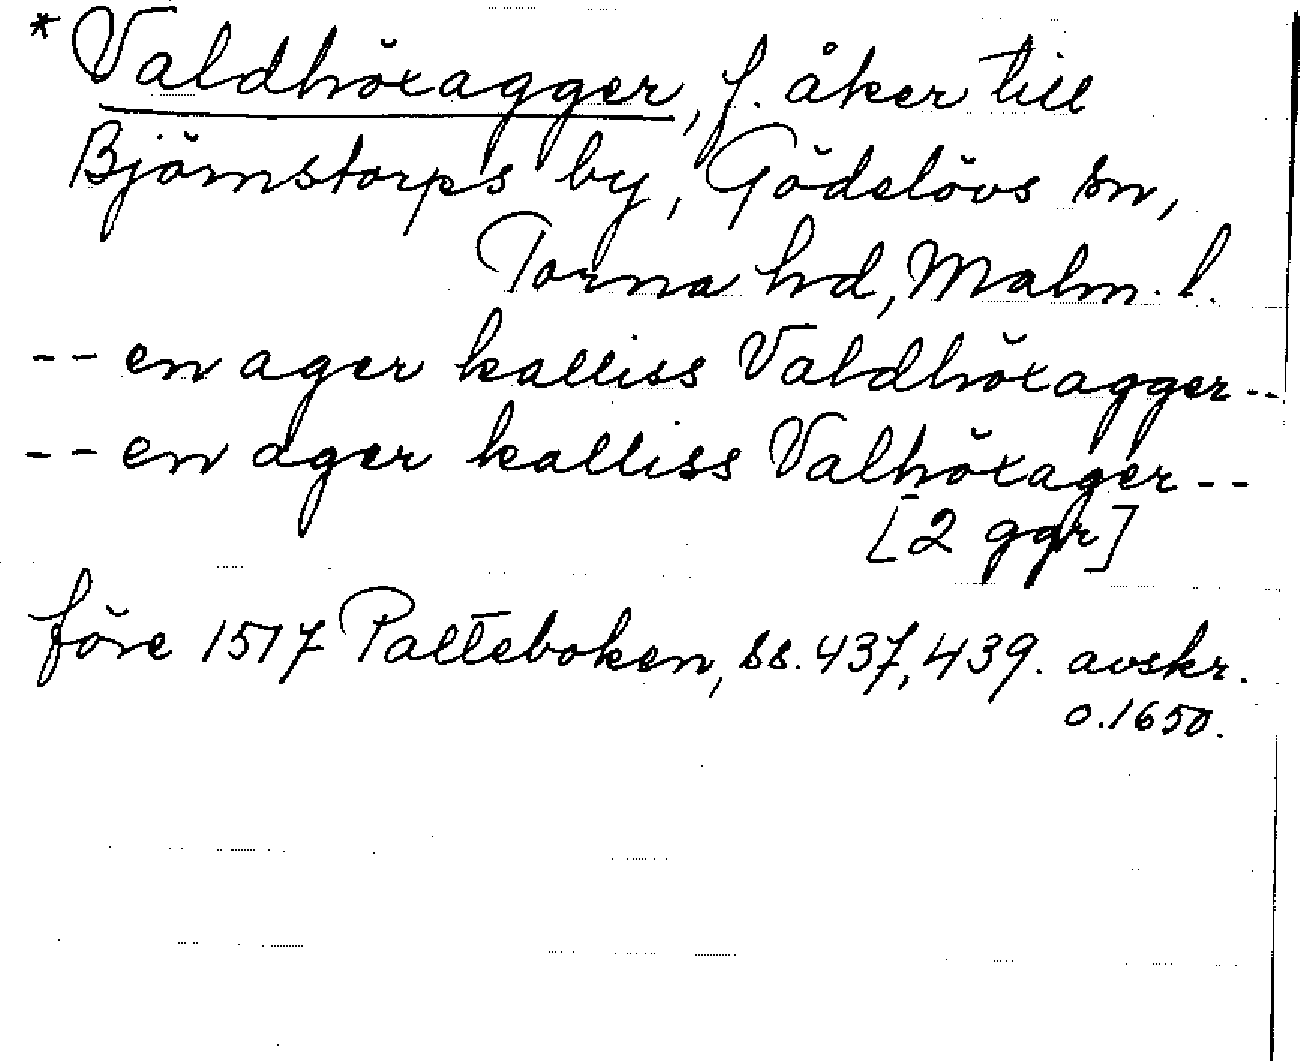 *Valdhöxagger, f. åker till
Björnstorps by, Gödelövs sn,
Torna hd, Malm. l.
-- en ager kalliss Valdhöxagger --
-- en ager kalliss Valhöxager --
[2 ggr]
före 1517 Palteboken, ss. 437, 439. avskr.
o. 1650.